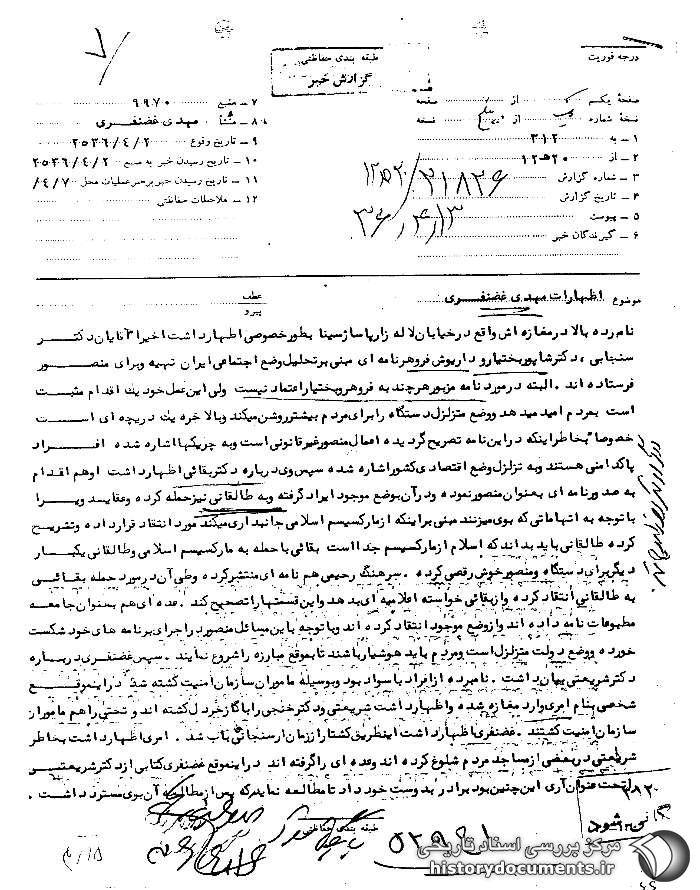 طبقه بندی حفاظتی
گزارش خبر
درجه فوریت
صفحه یکم از صفحه
نسخه شماره از نسخه
۱ ـ به ۳۱۲
۲ ـ از ۲۰ هـ ۱۲
۳ ـ شماره گزارش ۲۱۸۲۶ / ۲۰ هـ ۱۲
۴ ـ تاریخ گزارش ۳۶/۴/۱۳
۵ ـ پیوست
۶ ـ گیرندگان خبر
۷ ـ منبع ۹۹۷۰
۸ ـ منشأ مهدی غضنفری
۹ ـ تاریخ وقوع ۲۵۳۶/۴/۲
۱۰ ـ تاریخ رسیدن خبر به منبع ۲۵۳۶/۴/۲
۱۱ ـ تاریخ رسیدن خبر برهبر عملیات محل ۴/۷/
۱۲ ـ ملاحظات حفاظتی
موضوع اظهارات مهدی غضنفری
عطف
پیرو
نامبرده بالا در مغازه اش واقع در خیابان لاله زار پاساژ سینا بطور خصوصی اظهار داشت اخیرا آقایان دکتر
سنجابی ، دکتر شاپور بختیار و داریوش فروهر نامه ای مبنی بر تحلیل وضع اجتماعی ایران تهیه و برای منصور
فرستاده اند . البته در مورد نامه مزبور هر چند به فروهر و بختیار اعتماد نیست ولی این عمل خود یک اقدام مثبت
است بمردم امید میدهد و وضع متزلزل دستگاه را برای مردم بیشتر روشن میکند و بالاخره یک دریچه ای است
خصوصا" بخاطر اینکه در این نامه تصریح گردیده اعمال منصور غیر قانونی است و به چریکها اشاره شده افراد
پاکدامنی هستند و به تزلزل وضع اقتصادی کشور اشاره شده سپس وی درباره دکتر بقائی اظهار داشت او هم اقدام
به صدور نامه ای بعنوان منصور نموده و در آن بوضع موجود ایراد گرفته و به طالقانی نیز حمله کرده و عقاید سد ویرا
با توجه به اتهاماتی که بوی میزنند مبنی بر اینکه از مارکسیسم اسلامی جانبداری میکند مورد انتقاد قرار داده و تشریح
کرده طالقانی باید بداند که اسلام از مارکسیسم جدا است بقائی با حمله به مارکسیسم اسلامی و طالقانی یکبار
دیگر برای دستگاه و منصور خوش رقصی کرده . سرهنگ رحیمی هم نامه ای منتشر کرده و طی آن در مورد حمله بقائی
به طالقانی انتقاد کرده و از بقائی خواسته اعلامیه ای بدهد و این قسمتها را تصحیح کند . عده ای هم بعنوان جامعه
مطبوعات نامه داده اند و از وضع موجود انتقاد کرده اند و با توجه باین مسائل منصور در اجرای برنامه های خود شکست
خورده و وضع دولت متزلزل است و مردم باید هوشیار باشند تا بموقع مبارزه را شروع نمایند . سپس غضنفری درباره
دکتر شریعتی بیان داشت . نامبرده از افراد با سواد بود و بوسیله ماموران سازمان امنیت کشته شد در اینموقع
شخصی بنام امری وارد مغازه شده و اظهار داشت شریعتی و دکتر خنجی را با گاز خردل کشته اند و تختی را هم ماموران
سازمان امنیت کشتند . غضنفری اظهار داشت اینطریق کشتار از زمان ارسنجانی باب شد . امری اظهار داشت بخاطر
شریعتی در بعضی از مساجد مردم شلوغ کرده اند و عده ای را گرفته اند در اینموقع غضنفری کتابی از دکتر شریعتی
را تحت عنوان آری این چنین بود برادر به دوست خود داد تا مطالعه نماید که پس از مطالعه آن بوی مسترد داشت .
طبقه بندی حفاظتی
۳۸۲۰
شود
۴/۱۵
مرکز بررسی اسناد تاریخی
historydocuments.ir